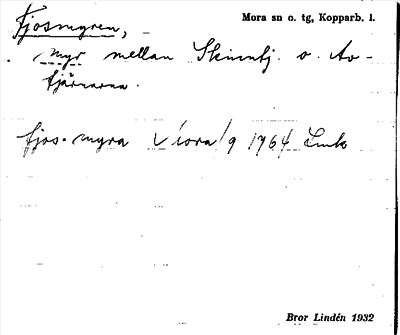 Fjosmyren,
Mora sn o. tg, Kopparb. l.
myr mellan Skinntj. o. Av-
tjärnarna.
fjos-myra Mora/9 1964
Bror Lindén 1932